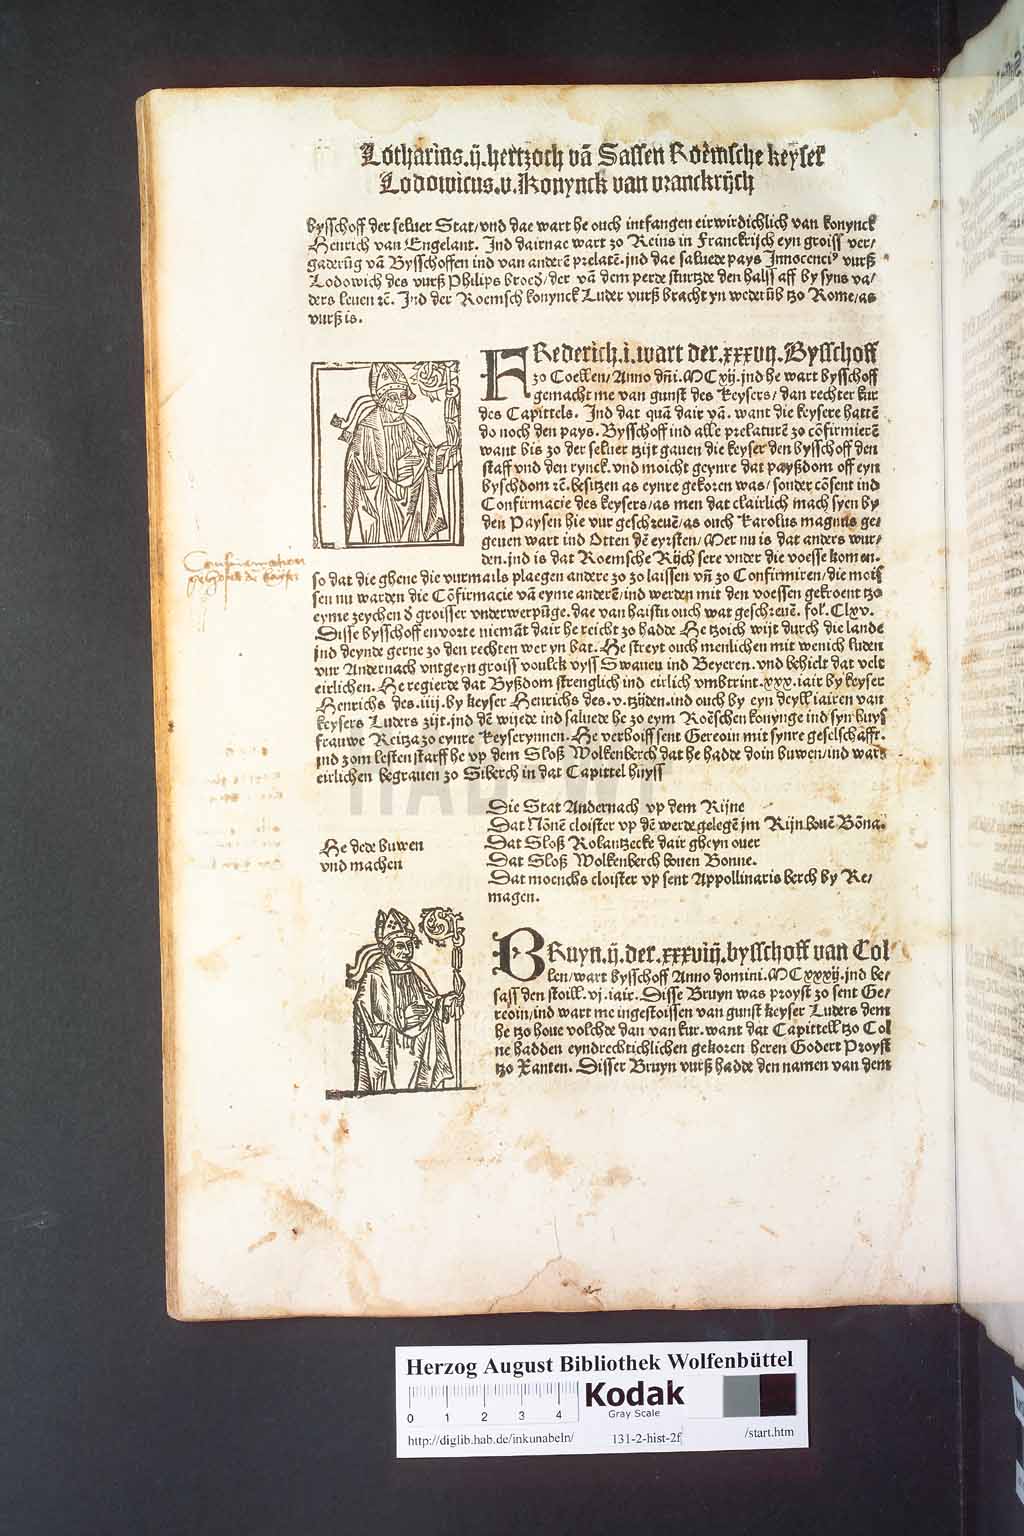 Lotharius.ij.hertzoch vā Sassen Roemsche keyser
Lodowicus.v.Konynck van vranckrijch
bysschoff der seluer Stat/vnd dae wart he ouch intfangen eirwirdichlich van konynck
Henrich van Engelant. Ind dairnae wart zo Reins in Franckrijch eyn groiss ver/
gaderūg vā Bysschoffen ind van anderē prelatē.jnd dae saluede pays Innocenciꝰ vurß
Lodowich des vurß Philips broeđ/der vā dem perde sturtzde den halss aff by syns va/
ders leuen ꝛc̄. Ind der Roemsch konynck Luder vurß bracht yn wederūb tzo Rome/as
vurß is.
FRederich.i.wart der.xxxvij.Bysschoff
zo Coellen/Anno dn̄i.MCxij.jnd he wart bysschoff
gemacht me van gunst des keysers/dan rechter kur
des Capittels. Ind dat quā dair vā. want die keysere hattē
do noch den pays. Bysschoff ind alle prelaturē zo cōfirmierē
want bis zo der seluer tzijt gauen die keyser den bysschoff den
staff vnd den rynck. vnd moicht geynre dat payßdom off eyn
byschdom ꝛc̄. besitzen as eynre gekoren was/sonder cōsent ind
Confirmacie des keysers/as men dat clairlich mach syen by
den Paysen hie vur geschreuē/as ouch Karolus magnus ge/
geuen wart ind Otten dē eyrsten/Mer nu is dat anders wur/
den.jnd is dat Roemsche Rijch sere vnder die voesse komen.
so dat die ghene die vurmails plaegen andere zo zo laissen vn̄ zo Confirmiren/die mois
sen nu warden die Cōfirmacie vā eyme anderē/ind werden mit den voessen gekroent tzo
eyme zeychen đ groisser vnderwerpūge.dae van haistu ouch wat geschreuē. fol. Clxv.
Disse bysschoff en vorte niemāt dair he reicht zo hadde He tzoich wijt durch die lande
jnd deynde gerne zo den rechten wer yn bat. He streyt ouch menlichen mit wenich luden
vur Andernach vntgeyn groiss voulck vyss Swauen ind Beyeren. vnd behielt dat velt
eirlichen. He regierde dat Byßdom strenglich ind eirlich vmbtrint.xxx.iair by keyser
Henrichs des.iiij.by keyser Henrichs des.v.tzijden.ind ouch by eyn deyll iairen van
keysers Luders zijt.jnd dē wijede ind saluede he zo eym Roēschen konynge ind syn huys
frauwe Reitza zo eynre keyserynnen. He verhoiff sent Gereoin mit synre geselschafft.
jnd zom lesten starff he vp dem Sloß Wolkenberch dat he hadde doin buwen/ind wart
eirlichen begrauen zo Siberch in dat Capittel huyss
Confirmation
He dede buwen
vnd machen
Die Stat Andernach vp dem Rijne
Dat Nōnē cloister vp dē werde gelegē jm Rijn bouē Bōna.
Dat Sloß Rolantzecke dair gheyn ouer
Dat Sloß Wolkenberch bouen Bonne.
Dat moenchs cloister vp sent Appollinaris berch by Re/
magen.
BRuyn.ij.der.xxxviij.bysschoff van Col
len/wart bysschoff Anno domini.MCxxxij.jnd be/
sass den stoill.vj.iair. Disse Bruyn was proyst zo sent Ge/
reoin/ind wart me ingestoissen van gunst keyser Luders dem
he tzo houe volchde dan van kur. want dat Capittell tzo Col
ne hadden eyndrechtichlichen gekoren heren Godert Proyst
tzo Xanten. Disser Bruyn vurß hadde den namen van dem
Herzog August Bibliothek Wolfenbüttel
0 1 2 3 4
Kodak
Gray Scale
http://diglib.hab.de/inkunabeln/ 131-2-hist-2f /start.htm